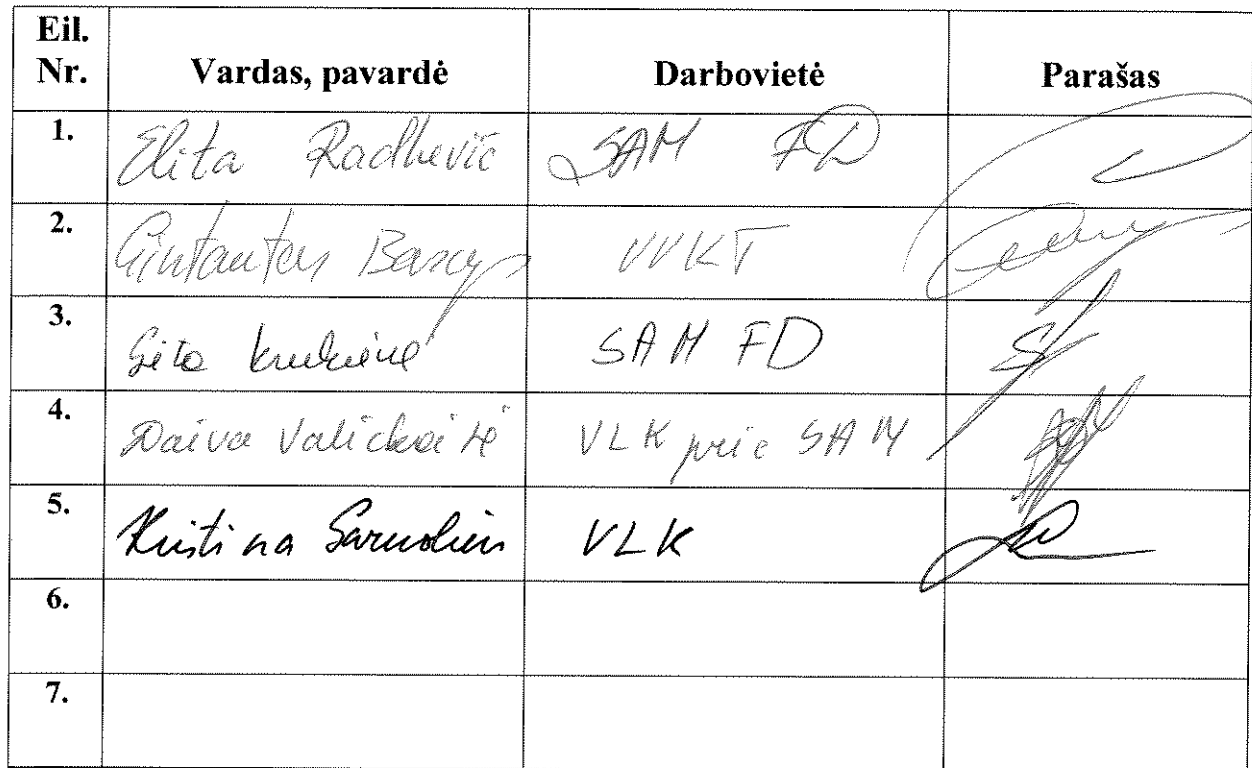 Eil. Nr. Vardas, pavardė Darbovietė Parašas
1. Elita Radkevič SAM FD
2. Gintautas Barcys VVKT
3. Gita Krukienė SAM FD
4. Daiva Valickaitė VLK prie SAM
5. Kristina VLK
6.
7.